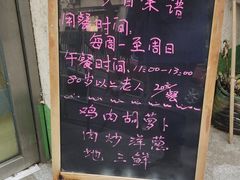 今日菜谱
用餐时间:
每周一至周日
午餐时间:11:00-13:00
80岁以上老人
鸡肉胡萝卜
肉炒洋葱
地三鲜